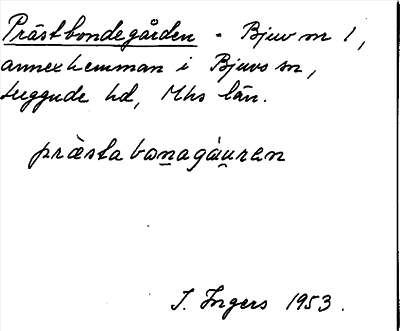 Prästbondegården - Bjuv nr 1,
annexhemman i Bjuvs sn,
Luggude hd, Mhs län.
præ̀sta bonagåuren
I. Ingers 1953.